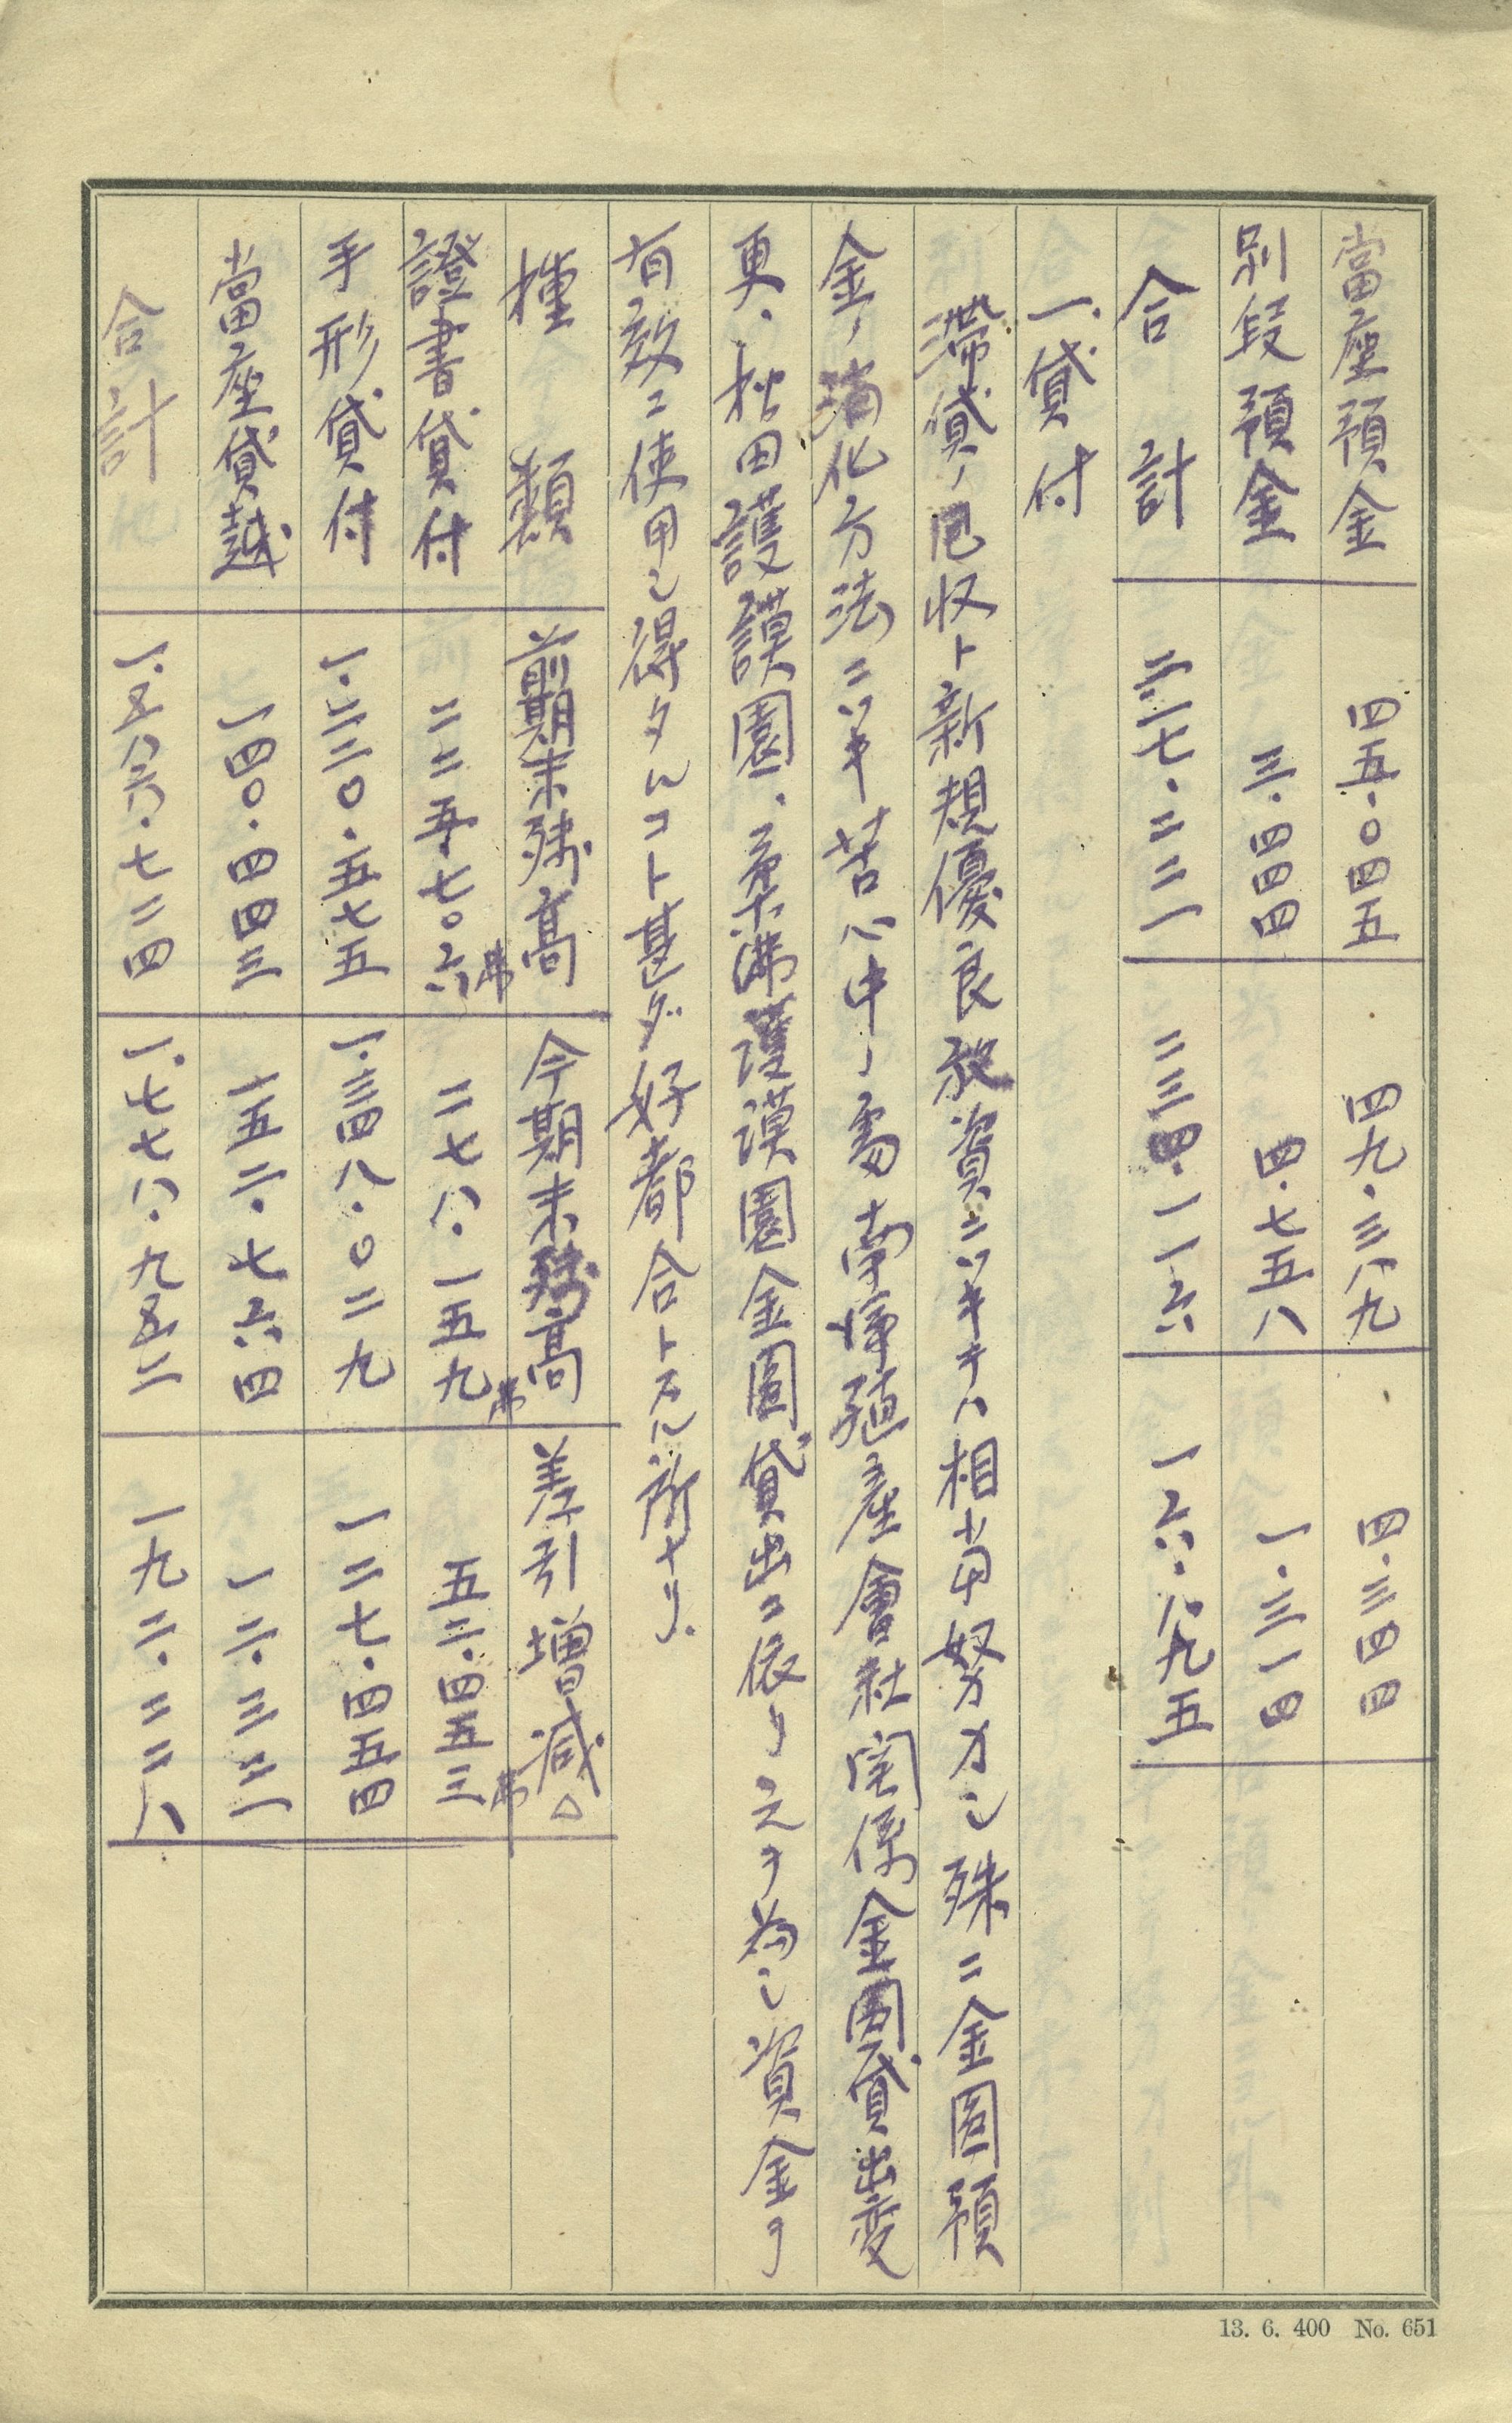 當座預金 四五・〇四五 四九・三八九 四・三四四
別段預金 三・四四四 四・七五八 一・三一四
合計 三一七・二二一 三三四・一一六 一六・八九五
一、貸付
滞貸ノ回収ト新規優良放資ニツキテハ相当努力シ殊ニ金圓預
金ノ消化方法ニツキ苦心中ノ處南洋殖産會社関係金圓貸出変
更、秋田護謨園、柔沸護謨園金圓貸出ニ依リ之ヲ為シ資金ヲ
有效ニ使用シ得タルコト甚ダ好都合トスル所ナリ.
種類 前期末残高 今期末残高 差引増減△
證書貸付 二二五・七〇六弗 二七八・一五九弗 五二・四五三弗
手形貸付 一・二二〇・五七五 一・三四八・〇二九 一二七・四五四
當座貸越 一四〇・四四三 一五二・七六四 一二・三二一
合計 一・五八六・七二四 一・七七八・九五二 一九二・二二八
13. 6. 400 No. 651